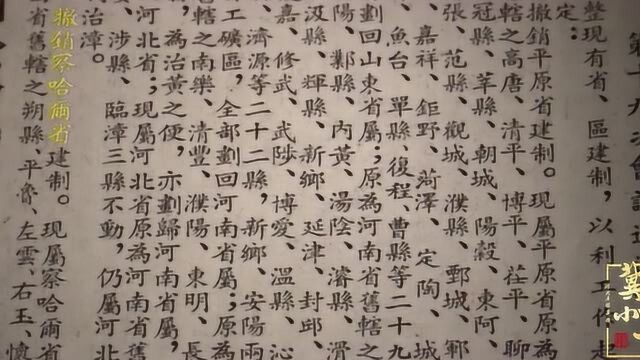 整現有省、區建制，以利工作起
定：
撤銷平原省建制。現屬平原省原為
轄之高唐、清平、博平、茌平、聊
冠縣、莘縣、朝城、陽穀、東阿、
張、范縣、觀城、濮縣、鄄城、鄆
、嘉祥、鉅野、菏澤、定陶、城
、魚台、單縣、復程、曹縣等二十九
劃回山東省屬；原為河南省舊轄之
陽、鄴縣、內黃、湯陰、濬縣、滑
汲縣、輝縣、新鄉、延津、封邱、
嘉、修武、武陟、博愛、溫縣、沁
、濟源等二十二縣，新鄉、安陽兩
工礦區，全部劃回河南省屬；原為
轄之南樂、清豐、濮陽、東明、長
，為治黃之便，亦劃歸河南省屬
河北省；現屬河北省原為河南省舊
、涉縣、臨漳三縣不動，仍屬河北
治漳。
撤銷察哈爾省建制。現屬察哈爾省
省舊轄之朔縣、平魯、左雲、右玉、懷
冀小